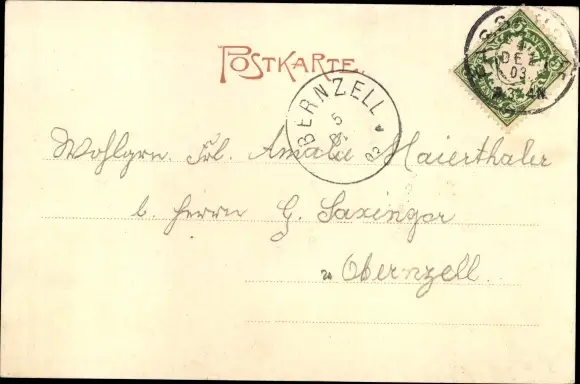 POSTKARTE.
BERNZELL
5
03
DEZ
03
Wohlgn. Frl. Amalie Maierthaler
b. Herrn G. Saxinger
Obernzell.